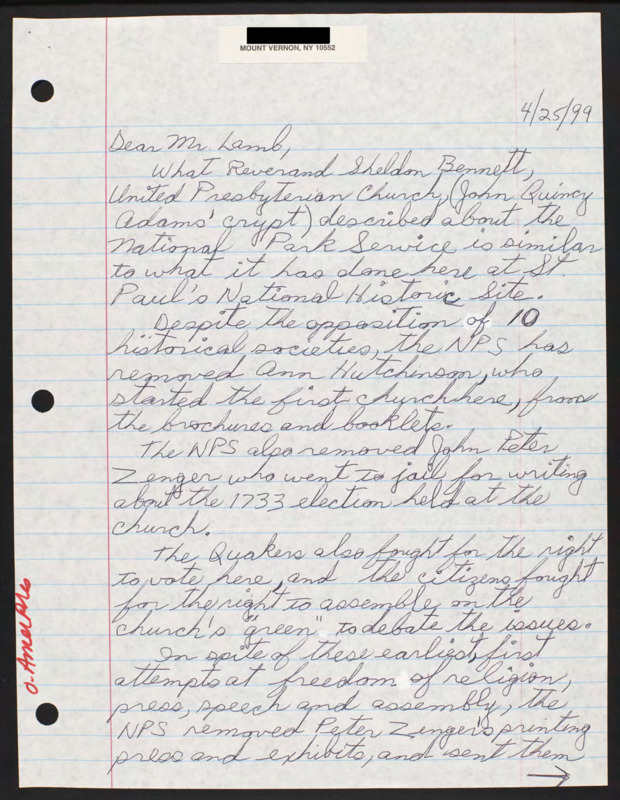 MOUNT VERNON, NY 10552
4/25/99
Dear Mr. Lamb,
What Reverand Sheldon Bennett,
United Presbyterian Church, (John Quincy
Adams' crypt) described about the
National Park Service is similar
to what it has done here at St.
Paul's National Historic Site.
Despite the opposition of 10
historical societies, the NPS has
removed Ann Hutchinson, who
started the first church here, from
the brochures and booklets.
The NPS also removed John Peter
Zenger who went to jail for writing
about the 1733 election held at the
church.
The Quakers also fought for the right
to vote here, and the citizens fought
for the right to assemble on the
church's "green" to debate the issues.
In spite of these earliest, first
attempts at freedom of religion,
press, speech and assembly, the
NPS removed Peter Zenger's printing
press and exhibits, and sent them
→